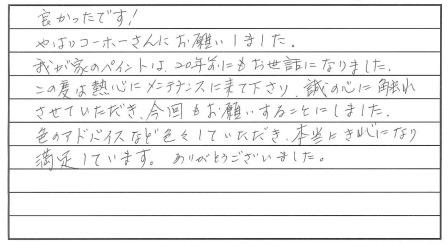 良かったです!
やはりコーホーさんにお願いしました。
我が家のペイントは、20年前にもお世話になりました。
この度は熱心にメンテナンスに来て下さり、誠の心に触れ
させていただき、今回もお願いすることにしました。
色のアドバイスなど色々していただき、本当にきれいになり
満足しています。ありがとうございました。